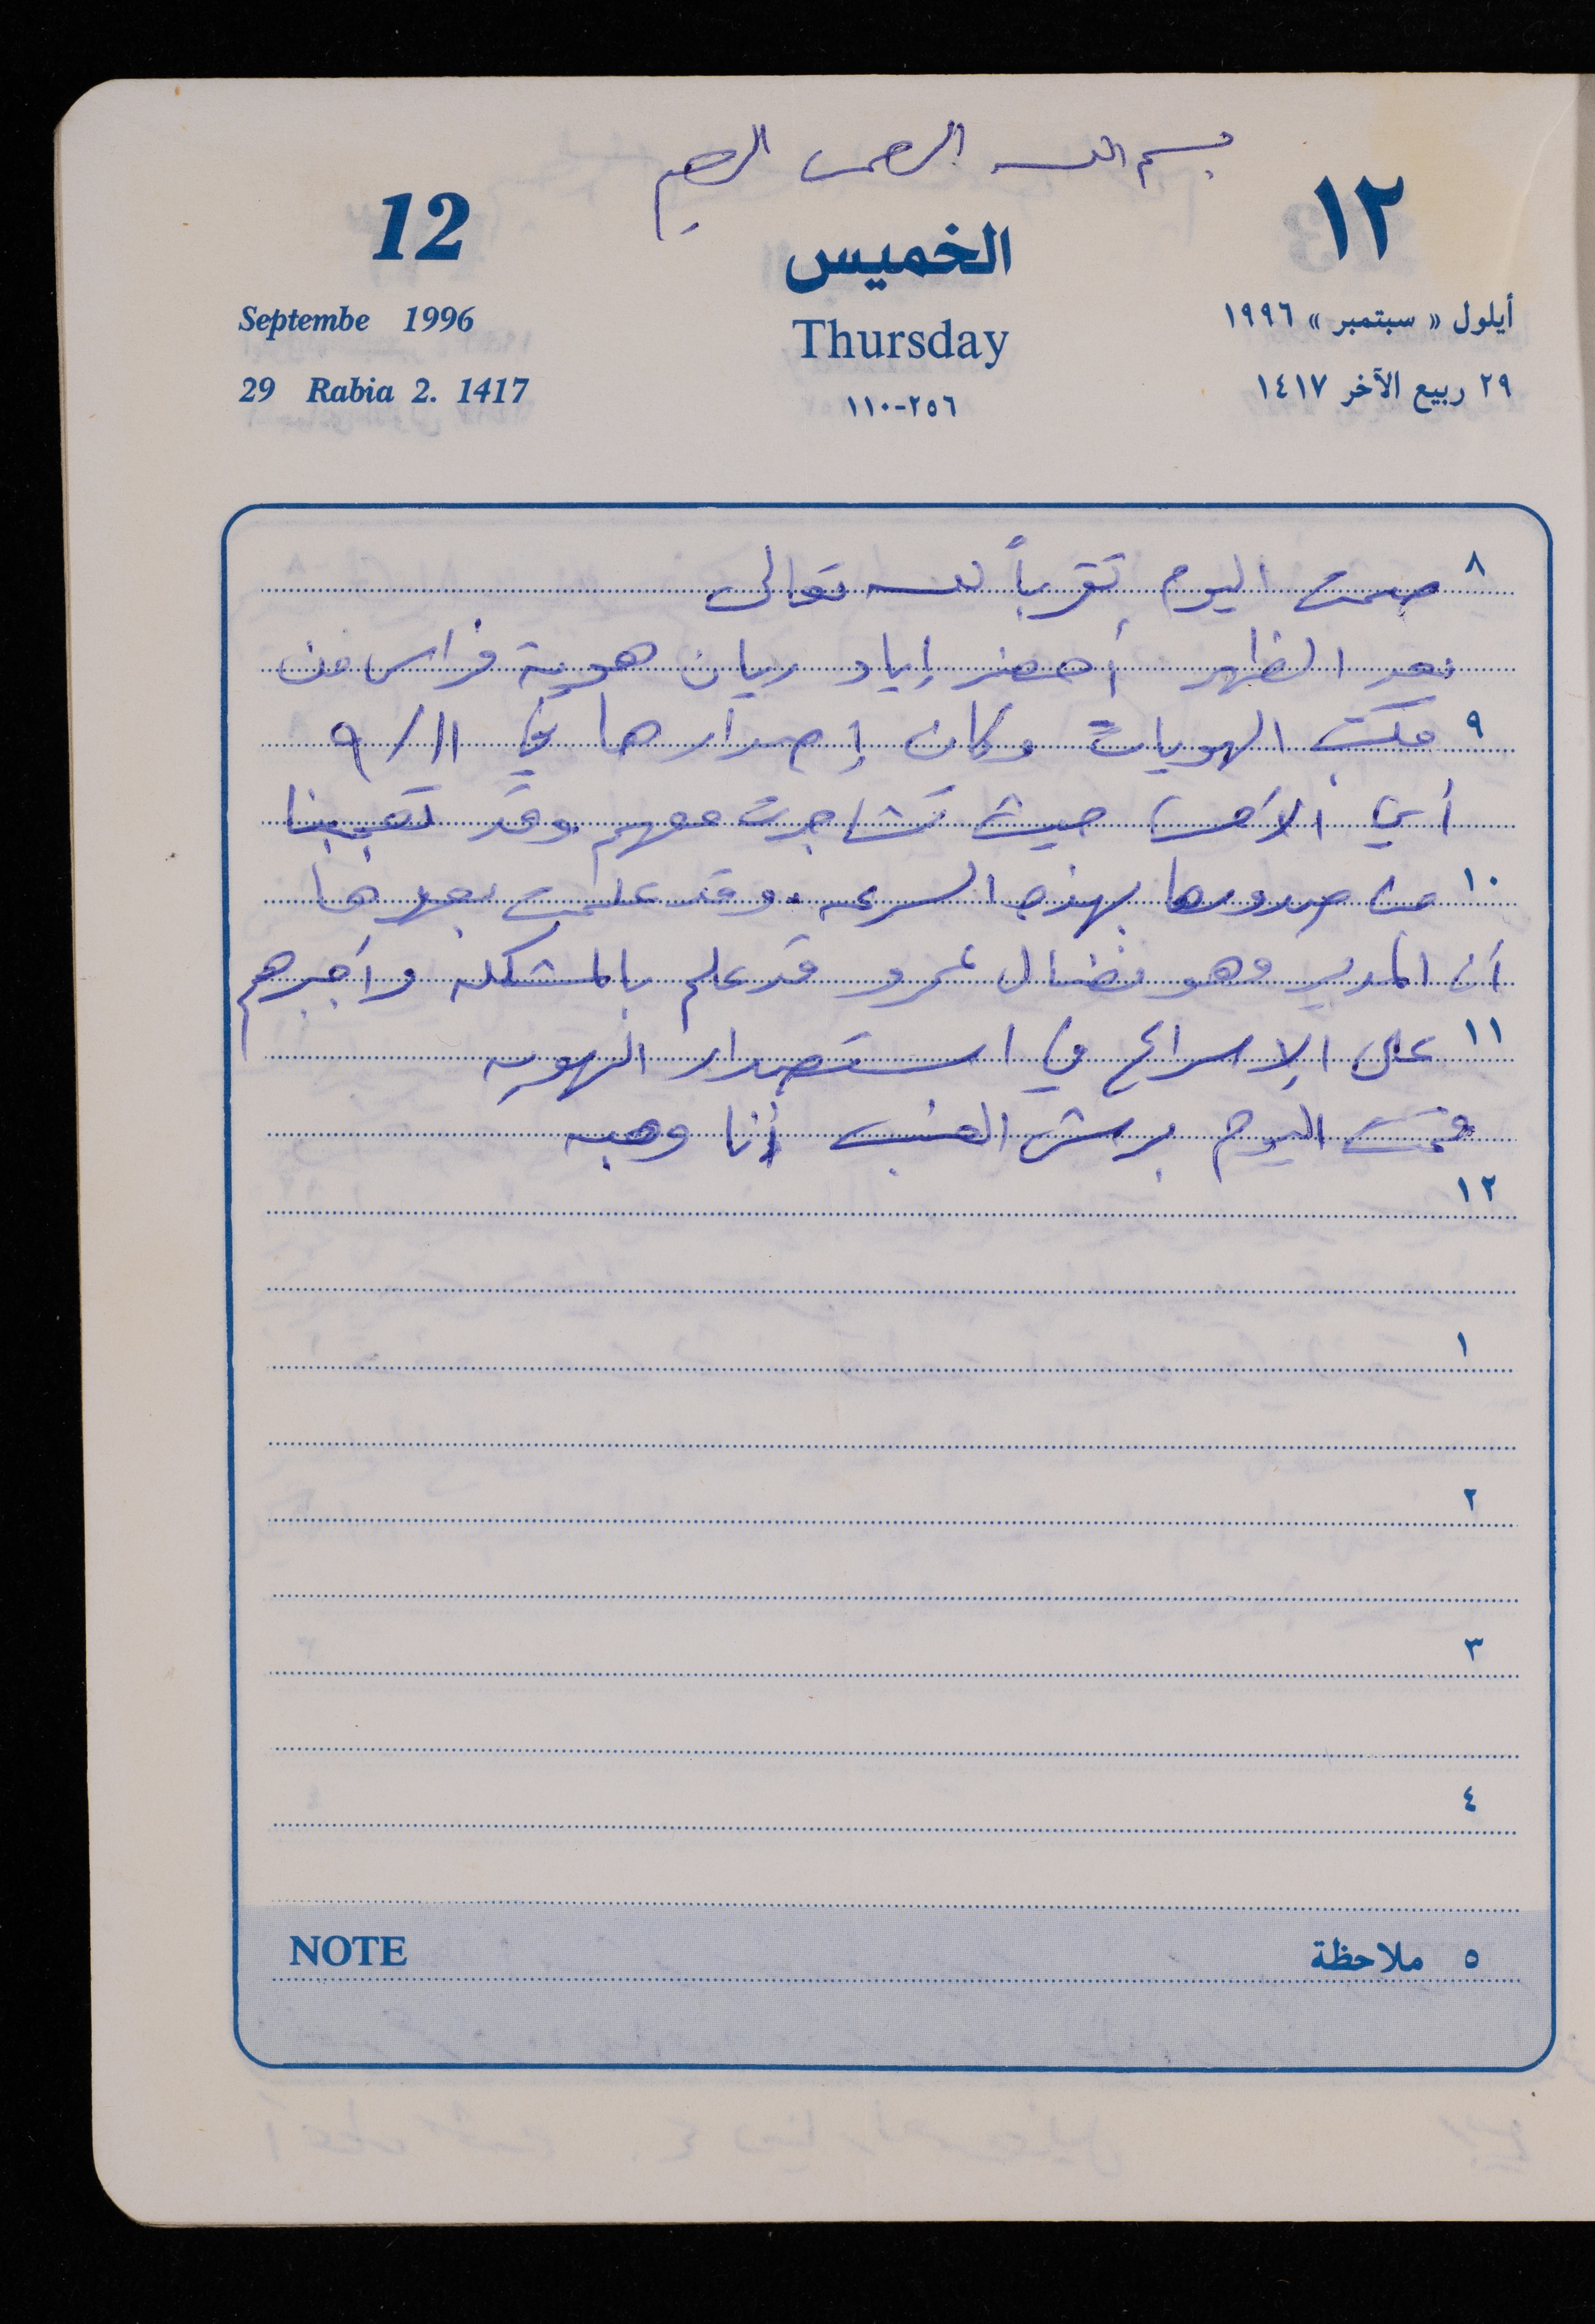 بسم الله الرحمن الرحيم
12
الخميس
١٢
Septembe 1996
Thursday
أيلول « سبتمبر » ١٩٩٦
29 Rabia 2. 1417
٢٥٦-١١٠
٢٩ ربيع الآخر ١٤١٧
٨ صمت اليوم تقرباً لله تعالى
بعد الظهر أحضر إياد ريان هوية فراس من
٩ مكتب الهويات وكان إصدارها في ١١/٩
أي الأمس حيث تشاجرت معهم وقد تعجبنا
١٠ من صدورها بهذه السرعه. وقد علمت بعدها
أن المدير وهو نضال عمرو قد علم بالمشكله وأجبرهم
١١ على الإسراع في استصدار الهويه
قمت اليوم برش العنب أنا وهبه
١٢
١
٢
٣
٤
NOTE
٥ ملاحظة